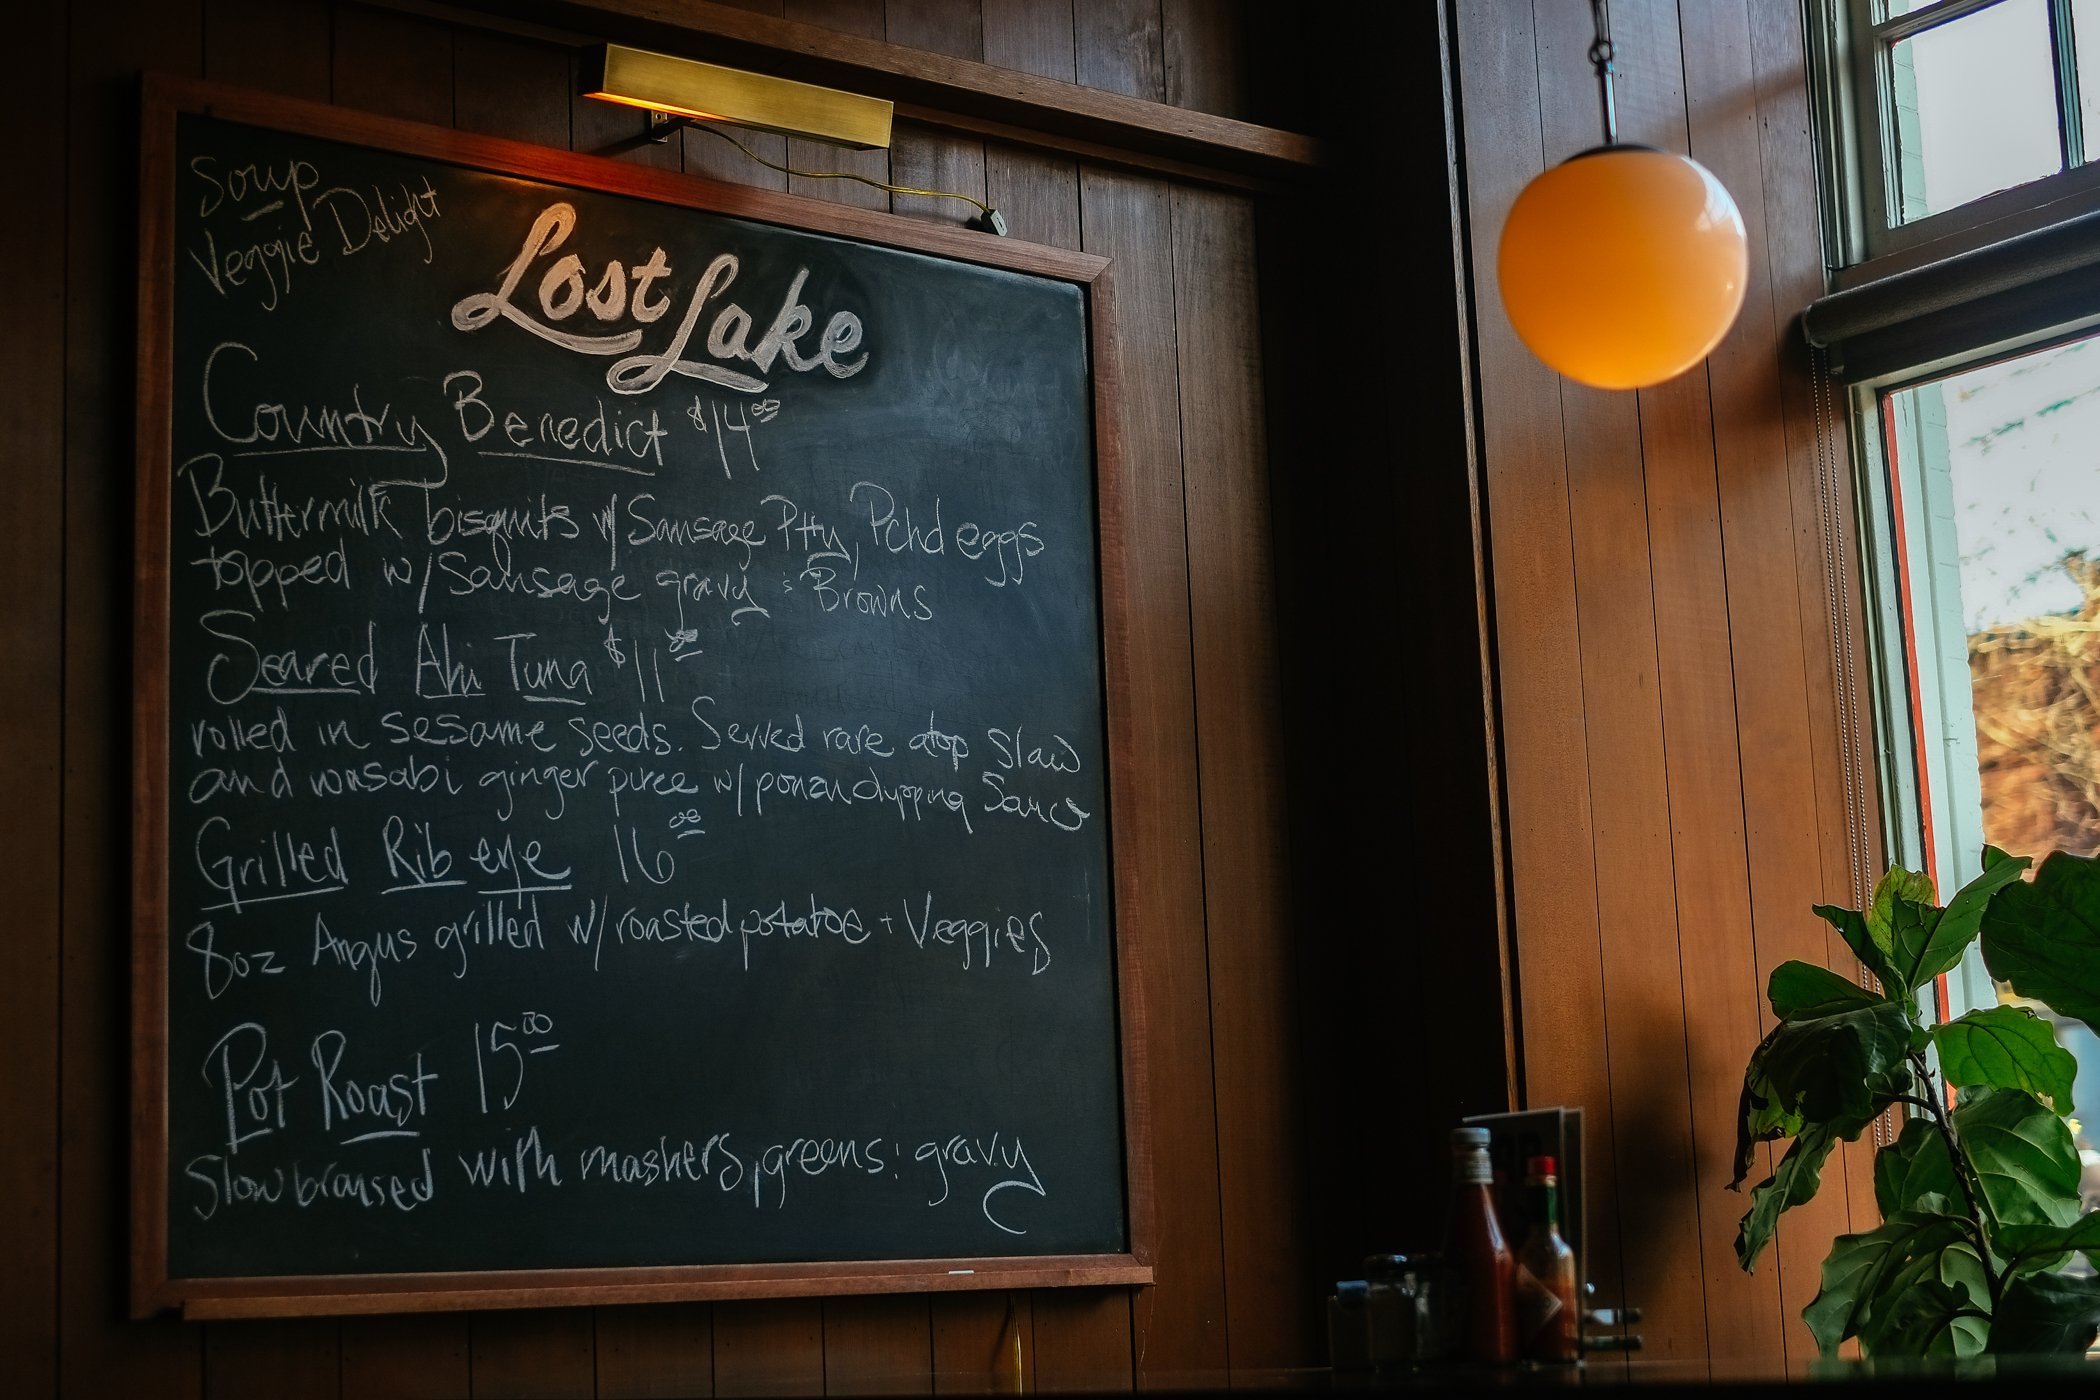 Soup
Veggie Delight
Lost Lake
Country Benedict $14.00
Buttermilk bisquits w/ Sausage Ptty, Pchd eggs
topped w/ Sausage gravy & Browns
Seared Ahi Tuna $11.00
rolled in sesame seeds. Served rare atop Slaw
and wasabi ginger puree w/ ponzu dipping Sauce
Grilled Rib eye 16.00
8oz Angus grilled w/ roasted potatoe + Veggies
Pot Roast 15.00
Slow braised with mashers, greens & gravy